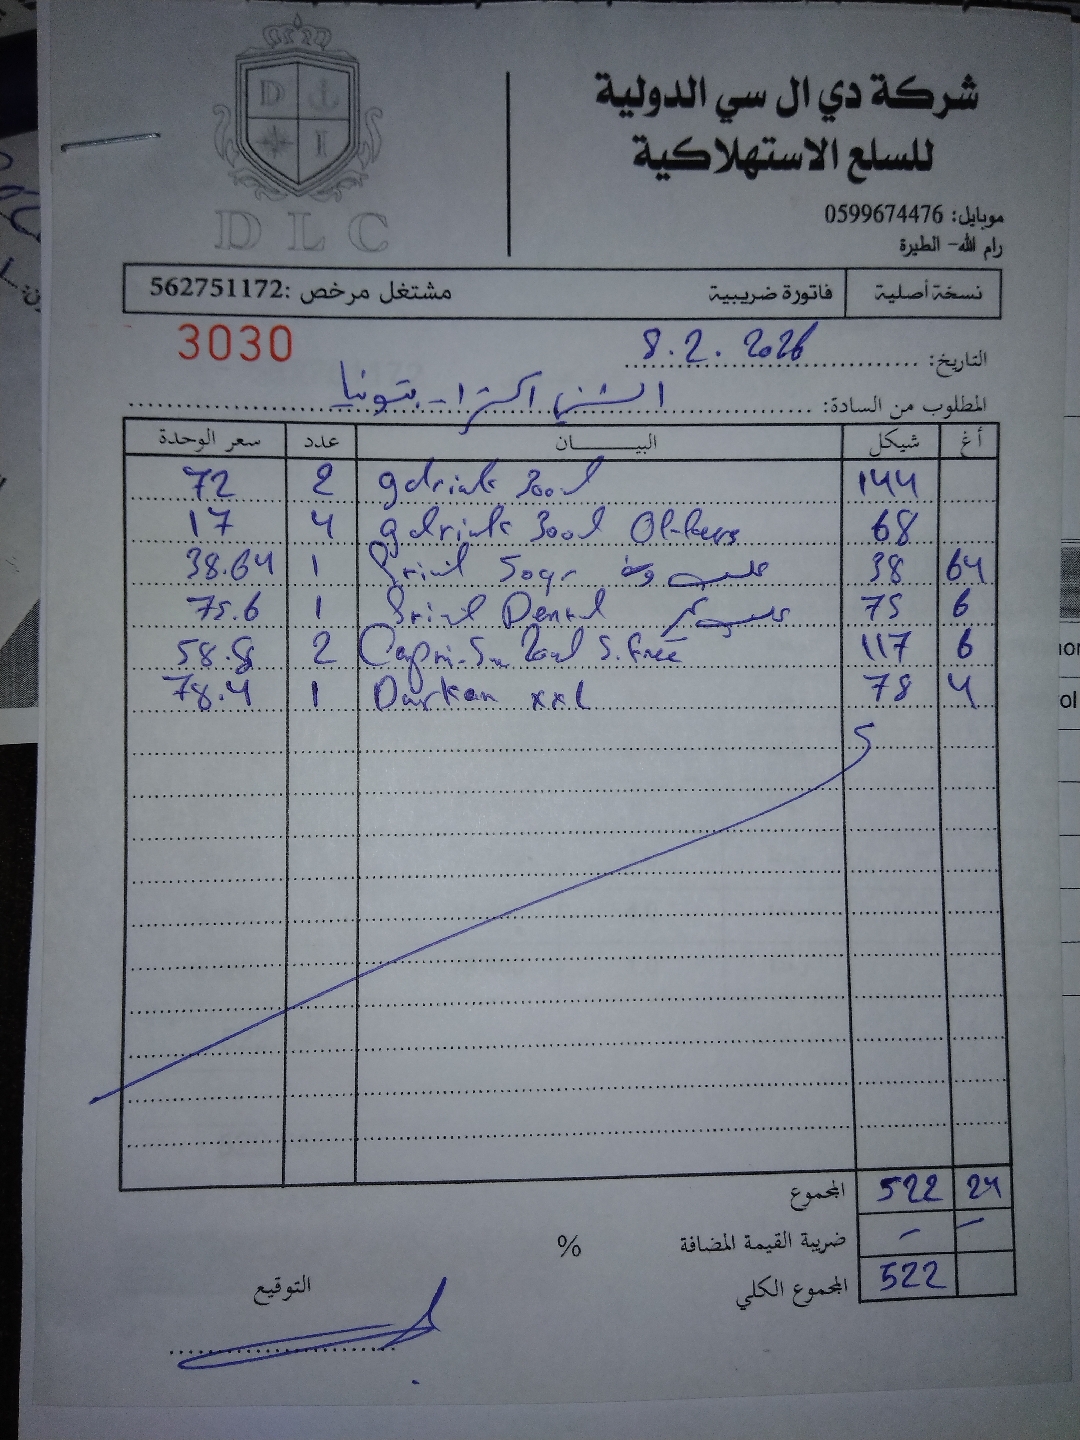 D I
DLC
شركة دي ال سي الدولية
للسلع الاستهلاكية
موبايل: 0599674476
رام الله- الطيرة
نسخة أصلية فاتورة ضريبية مشتغل مرخص :562751172
3030
التاريخ: 8.2.2026
المطلوب من السادة: الشني اكسترا - بتونيا
أغ شيكل البيـــــان عدد سعر الوحدة
144 gdrink 300ml 2 72
68 gdrink 300ml 4 17
64 38 50gr 1 38.64
6 75 1 75.6
6 117 Capri-Sun 200ml S.free 2 58.8
4 78 Darkan xxl 1 78.4
المجموع 522 24
ضريبة القيمة المضافة % - -
المجموع الكلي 522
التوقيع